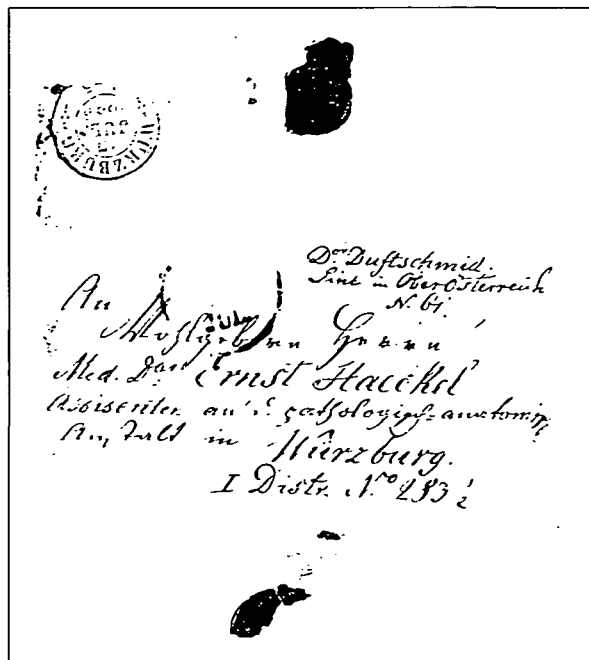 WÜRZBURG
Dor Duftschmid.
Linz in OberÖsterreich
N. 61.
An
Wohlgeboren Herrn
Med. Dor Ernst Haeckel
Assisenten an d. pathologisch-anatomisch
Anstalt in
Würzburg.
I Distr. No 283 1/2